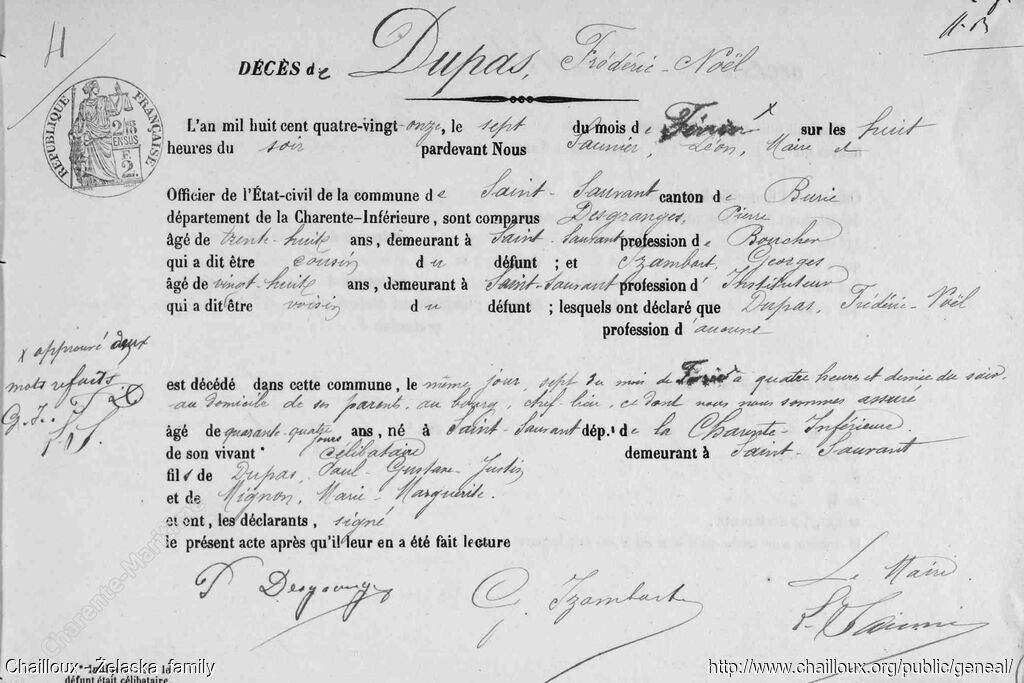 4
DÉCÈS de Dupas, Frédéric-Noël
RÉPUBLIQUE FRANÇAISE.
2/10 EN SUS
2 F.
L'an mil huit cent quatre-vingt-onze, le sept du mois de Février x sur les huit
heures du soir pardevant Nous Saunier, Léon, Maire et
Officier de l'État-civil de la commune de Saint-Sauvant canton de Burie
département de la Charente-Inférieure, sont comparus Desgranges, Pierre
âgé de trente-huit ans, demeurant à Saint-Sauvant profession de Boucher
qui a dit être cousin du défunt ; et Izambart, Georges
âgé de vingt-huit ans, demeurant à Saint-Sauvant profession d'Instituteur
qui a dit être voisin du défunt ; lesquels ont déclaré que Dupas, Frédéric-Noël
profession d'aucune
x approuvé deux
mots refaits.
G. I.
est décédé dans cette commune, le même jour, sept du mois de Février à quatre heures et demie du soir
au domicile de ses parents, au bourg, chef-lieu, ce dont nous nous sommes assuré
âgé de quarante-quatre jours ans, né à Saint-Sauvant dép.t de la Charente-Inférieure
de son vivant * célibataire demeurant à Saint-Sauvant
fils de Dupas, Paul-Gustave-Justin
et de Mignon, Marie-Marguerite.
et ont, les déclarants, signé
le présent acte après qu'il leur en a été fait lecture
P Desgranges
G. Izambart
Le Maire
L. Saunier
Charente-Maritime
défunt était célibataire.
Chailloux-Želaska family
http://www.chailloux.org/public/geneal/